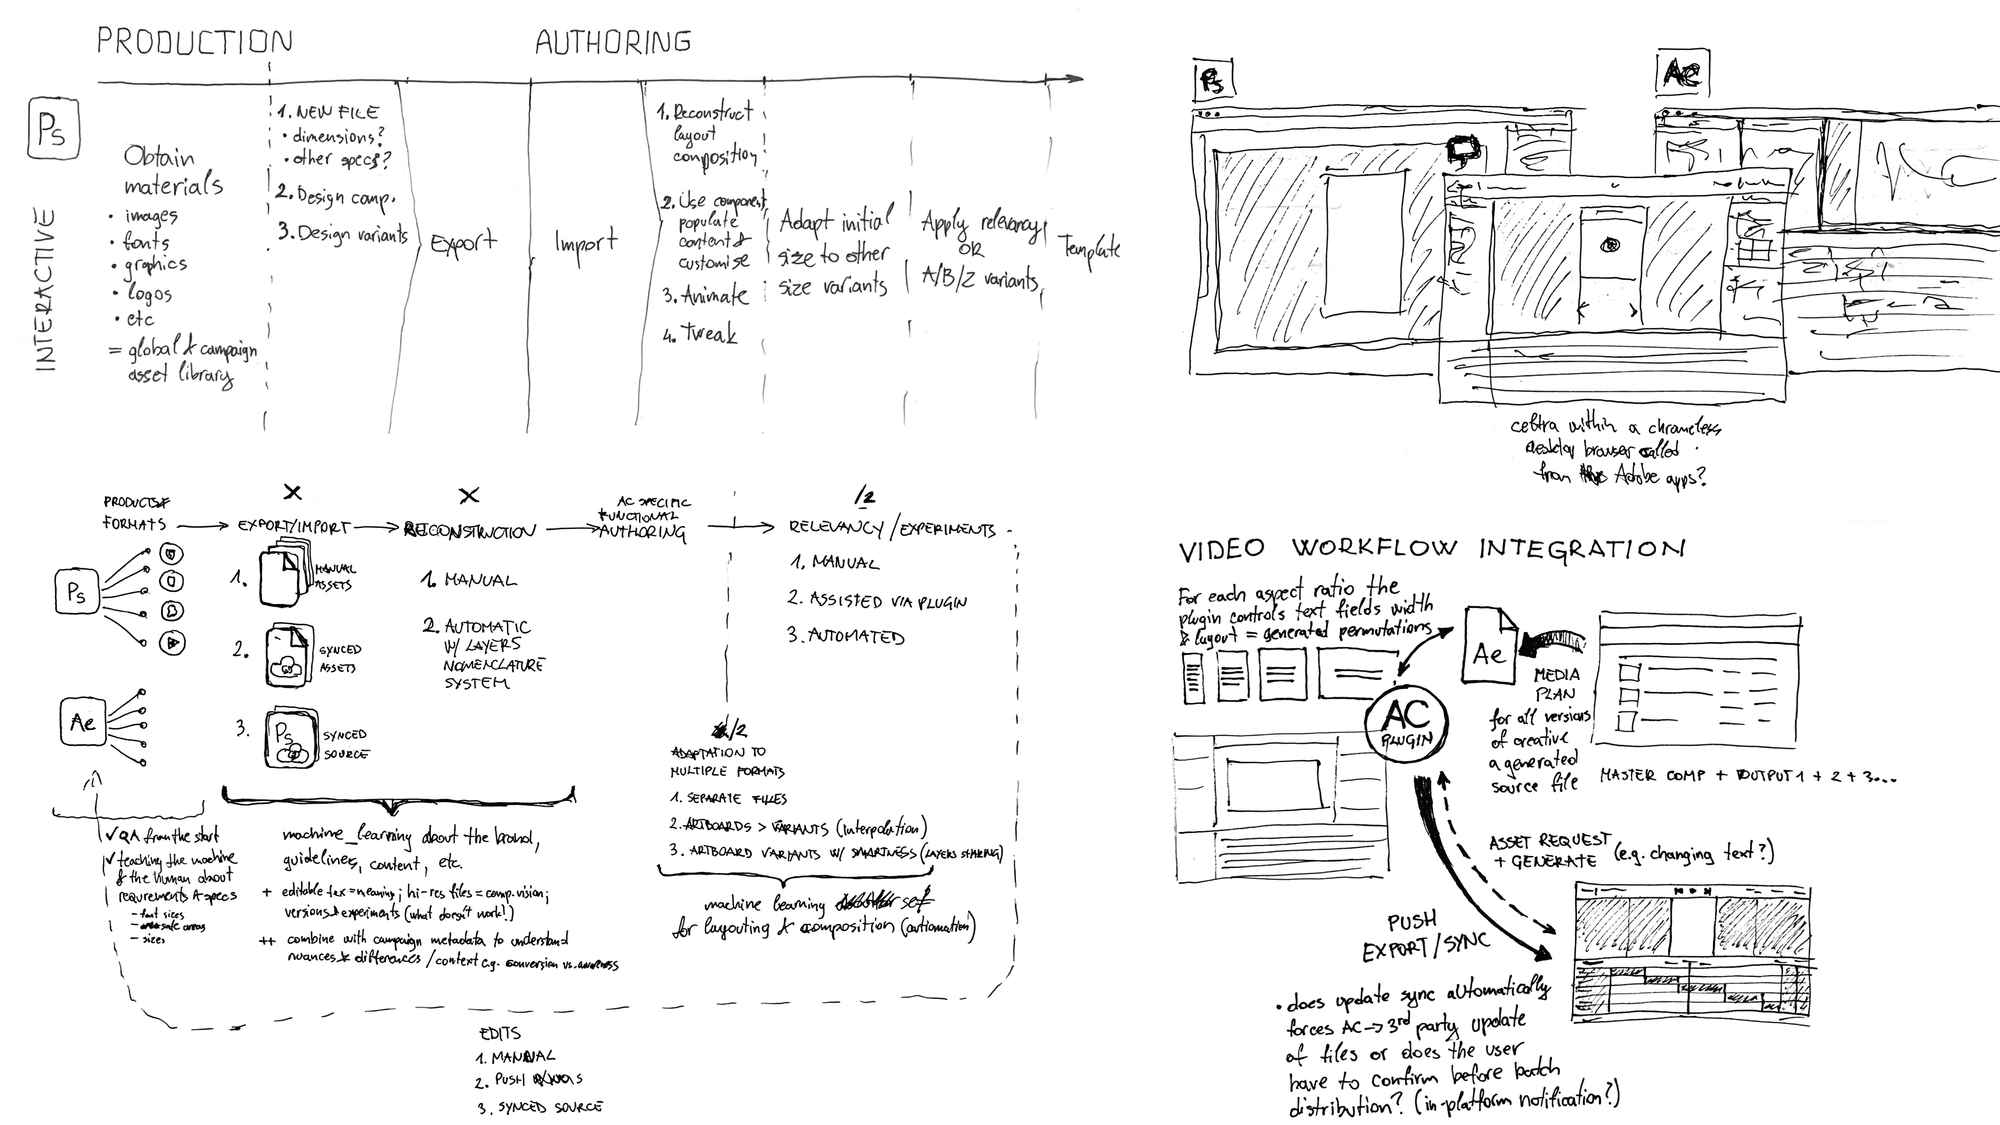 PRODUCTION
AUTHORING
Ps
INTERACTIVE
Obtain
materials
• images
• fonts
• graphics
• logos
• etc
= global & campaign
asset library
1. NEW FILE
• dimensions?
• other specs?
2. Design comp.
3. Design variants
Export
Import
1. Reconstruct
layout
composition
2. Use component,
populate
content &
customise
3. Animate
4. Tweak
Adapt initial
size to other
size variants
Apply relevancy
OR
A/B/Z variants
Template
Ps
Ae
celtra within a chromeless
desktop browser called
from Adobe apps?
PRODUCTS &
FORMATS
EXPORT/IMPORT
RECONSTRUCTION
AC SPECIFIC
FUNCTIONAL
AUTHORING
/2
RELEVANCY/EXPERIMENTS
Ps
Ae
1. MANUAL
ASSETS
2. SYNCED
ASSETS
3. Ps SYNCED
SOURCE
1. MANUAL
2. AUTOMATIC
W/ LAYERS
NOMENCLATURE
SYSTEM
1. MANUAL
2. ASSISTED VIA PLUGIN
3. AUTOMATED
/2
ADAPTATION TO
MULTIPLE FORMATS
1. SEPARATE FILES
2. ARTBOARDS > VARIANTS (interpolation)
3. ARTBOARD VARIANTS W/ SMARTNESS (LAYERS SHARING)
machine learning set
for layouting & composition (automation)
✓ QA from the start
✓ teaching the machine
& the human about
requirements & specs
- font sizes
- safe areas
- sizes
machine_learning about the brand,
guidelines, content, etc.
+ editable tax = meaning; hi-res files = comp. vision;
versions & experiments (what doesn't work!)
++ combine with campaign metadata to understand
nuances & differences / context e.g. conversion vs. awareness
EDITS
1. MANUAL
2. PUSH
3. SYNCED SOURCE
VIDEO WORKFLOW INTEGRATION
For each aspect ratio the
plugin controls text fields width
& layout = generated permutations
Ae
AC
PLUGIN
MEDIA
PLAN
for all versions
of creative
a generated
source file
MASTER COMP + OUTPUT 1 + 2 + 3...
ASSET REQUEST
+ GENERATE (e.g. changing text?)
PUSH
EXPORT/SYNC
• does update sync automatically
forces AC → 3rd party update
of files or does the user
have to confirm before batch
distribution? (in-platform notification?)